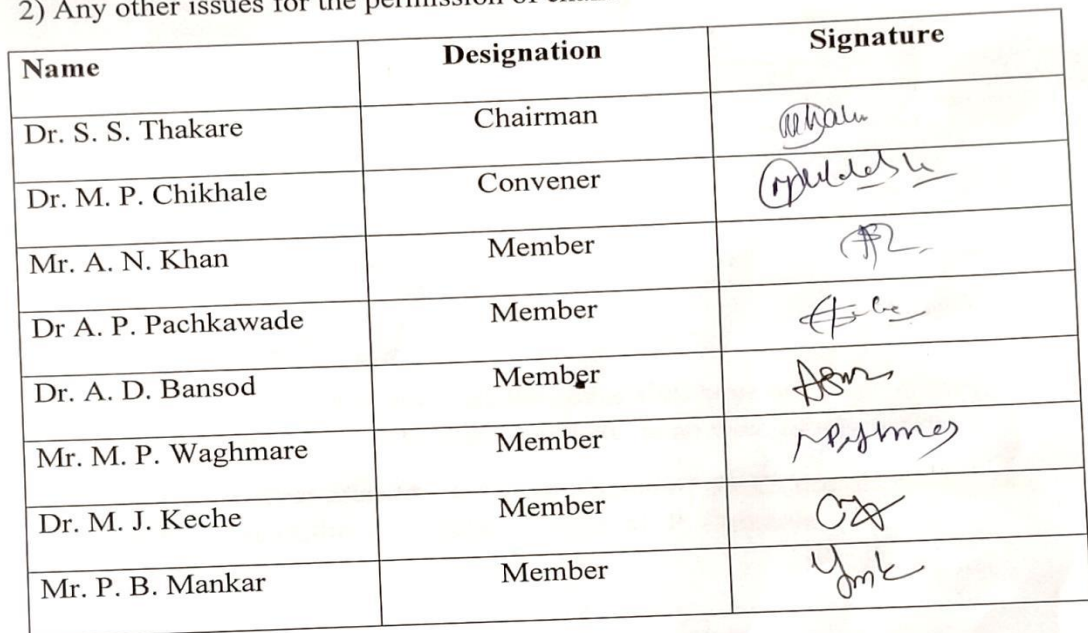 2) Any other issues for the permission of
Name Designation Signature
Dr. S. S. Thakare Chairman
Dr. M. P. Chikhale Convener
Mr. A. N. Khan Member
Dr A. P. Pachkawade Member
Dr. A. D. Bansod Member
Mr. M. P. Waghmare Member
Dr. M. J. Keche Member
Mr. P. B. Mankar Member